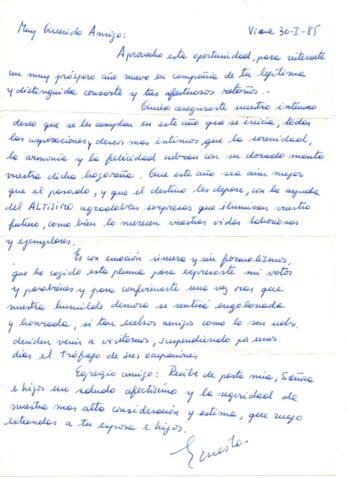 Muy Querido Amigo: Viane 30-I-85
Aprovecho esta oportunidad, para reiterarte
un muy próspero año nuevo en compañía de tu legítima
y distinguida consorte y tus afectuosos retoños.-
Quiero asegurarte nuestro intenso
deseo que se les cumplan en este año que se inicia, todas
las aspiraciones y deseos mas intimos que la serenidad,
la armonia y la felicidad cubran con su dorado manto
vuestra dicha hogareña. Que este año sea aún mejor
que el pasado, y que el destino les depare, con la ayuda
del ALTISIMO agradables sorpresas que iluminen vuestro
futuro, como bien lo merecen vuestras vidas laboriosas
y ejemplares.
Es con emoción sincera y sin formalismos,
que he cogido esta pluma para expresarte mi votos
y parabienes y para confirmarte una vez mas que
nuestra humilde demora se sentirá engalanada
y honrada, si tan excelsos amigos como lo son uds.
deciden venir a visitarnos, suspendiendo por unos
dias el tráfago de sus ocupaciones
Egregio amigo: Recibe de parte mia, Señora
e hijos un saludo afectisimo y la seguridad de
nuestra mas alta consideración y estima, que ruego
extiendas a tu esposa e hijos.
Ernesto.